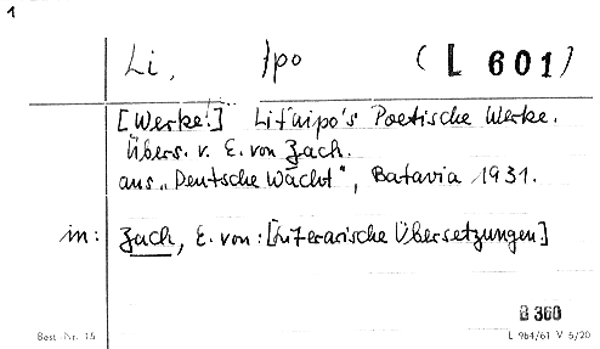 1
Li, Ipo (L 601)
[Werke:] Lit'aipo's Poetische Werke.
Übers. v. E. von Zach.
aus „Deutsche Wacht“, Batavia 1931.
in: Zach, E. von: [Literarische Übersetzungen]
B 360
Best.-Nr. 15 L 964/61 V 5/20